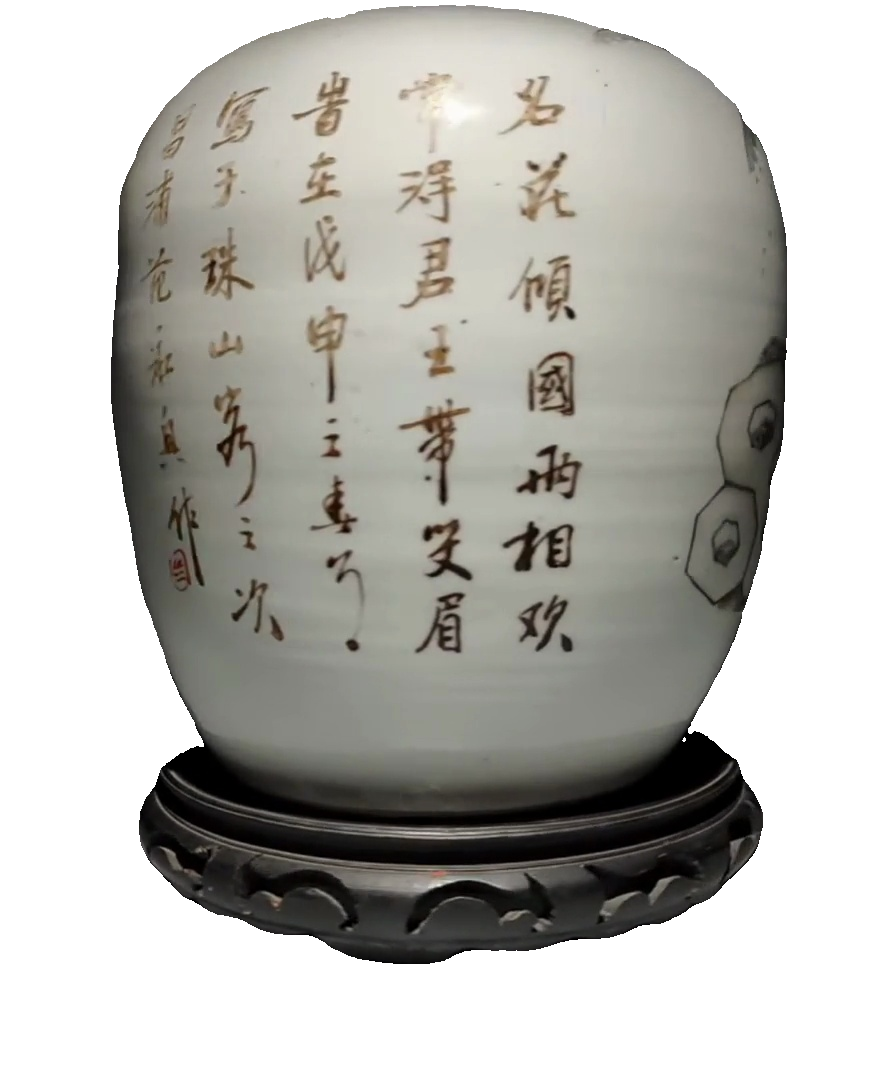 名花傾國兩相欢
常得君王帶笑眉
旹在戊申之春月
寫于珠山客之次
昌浦范作